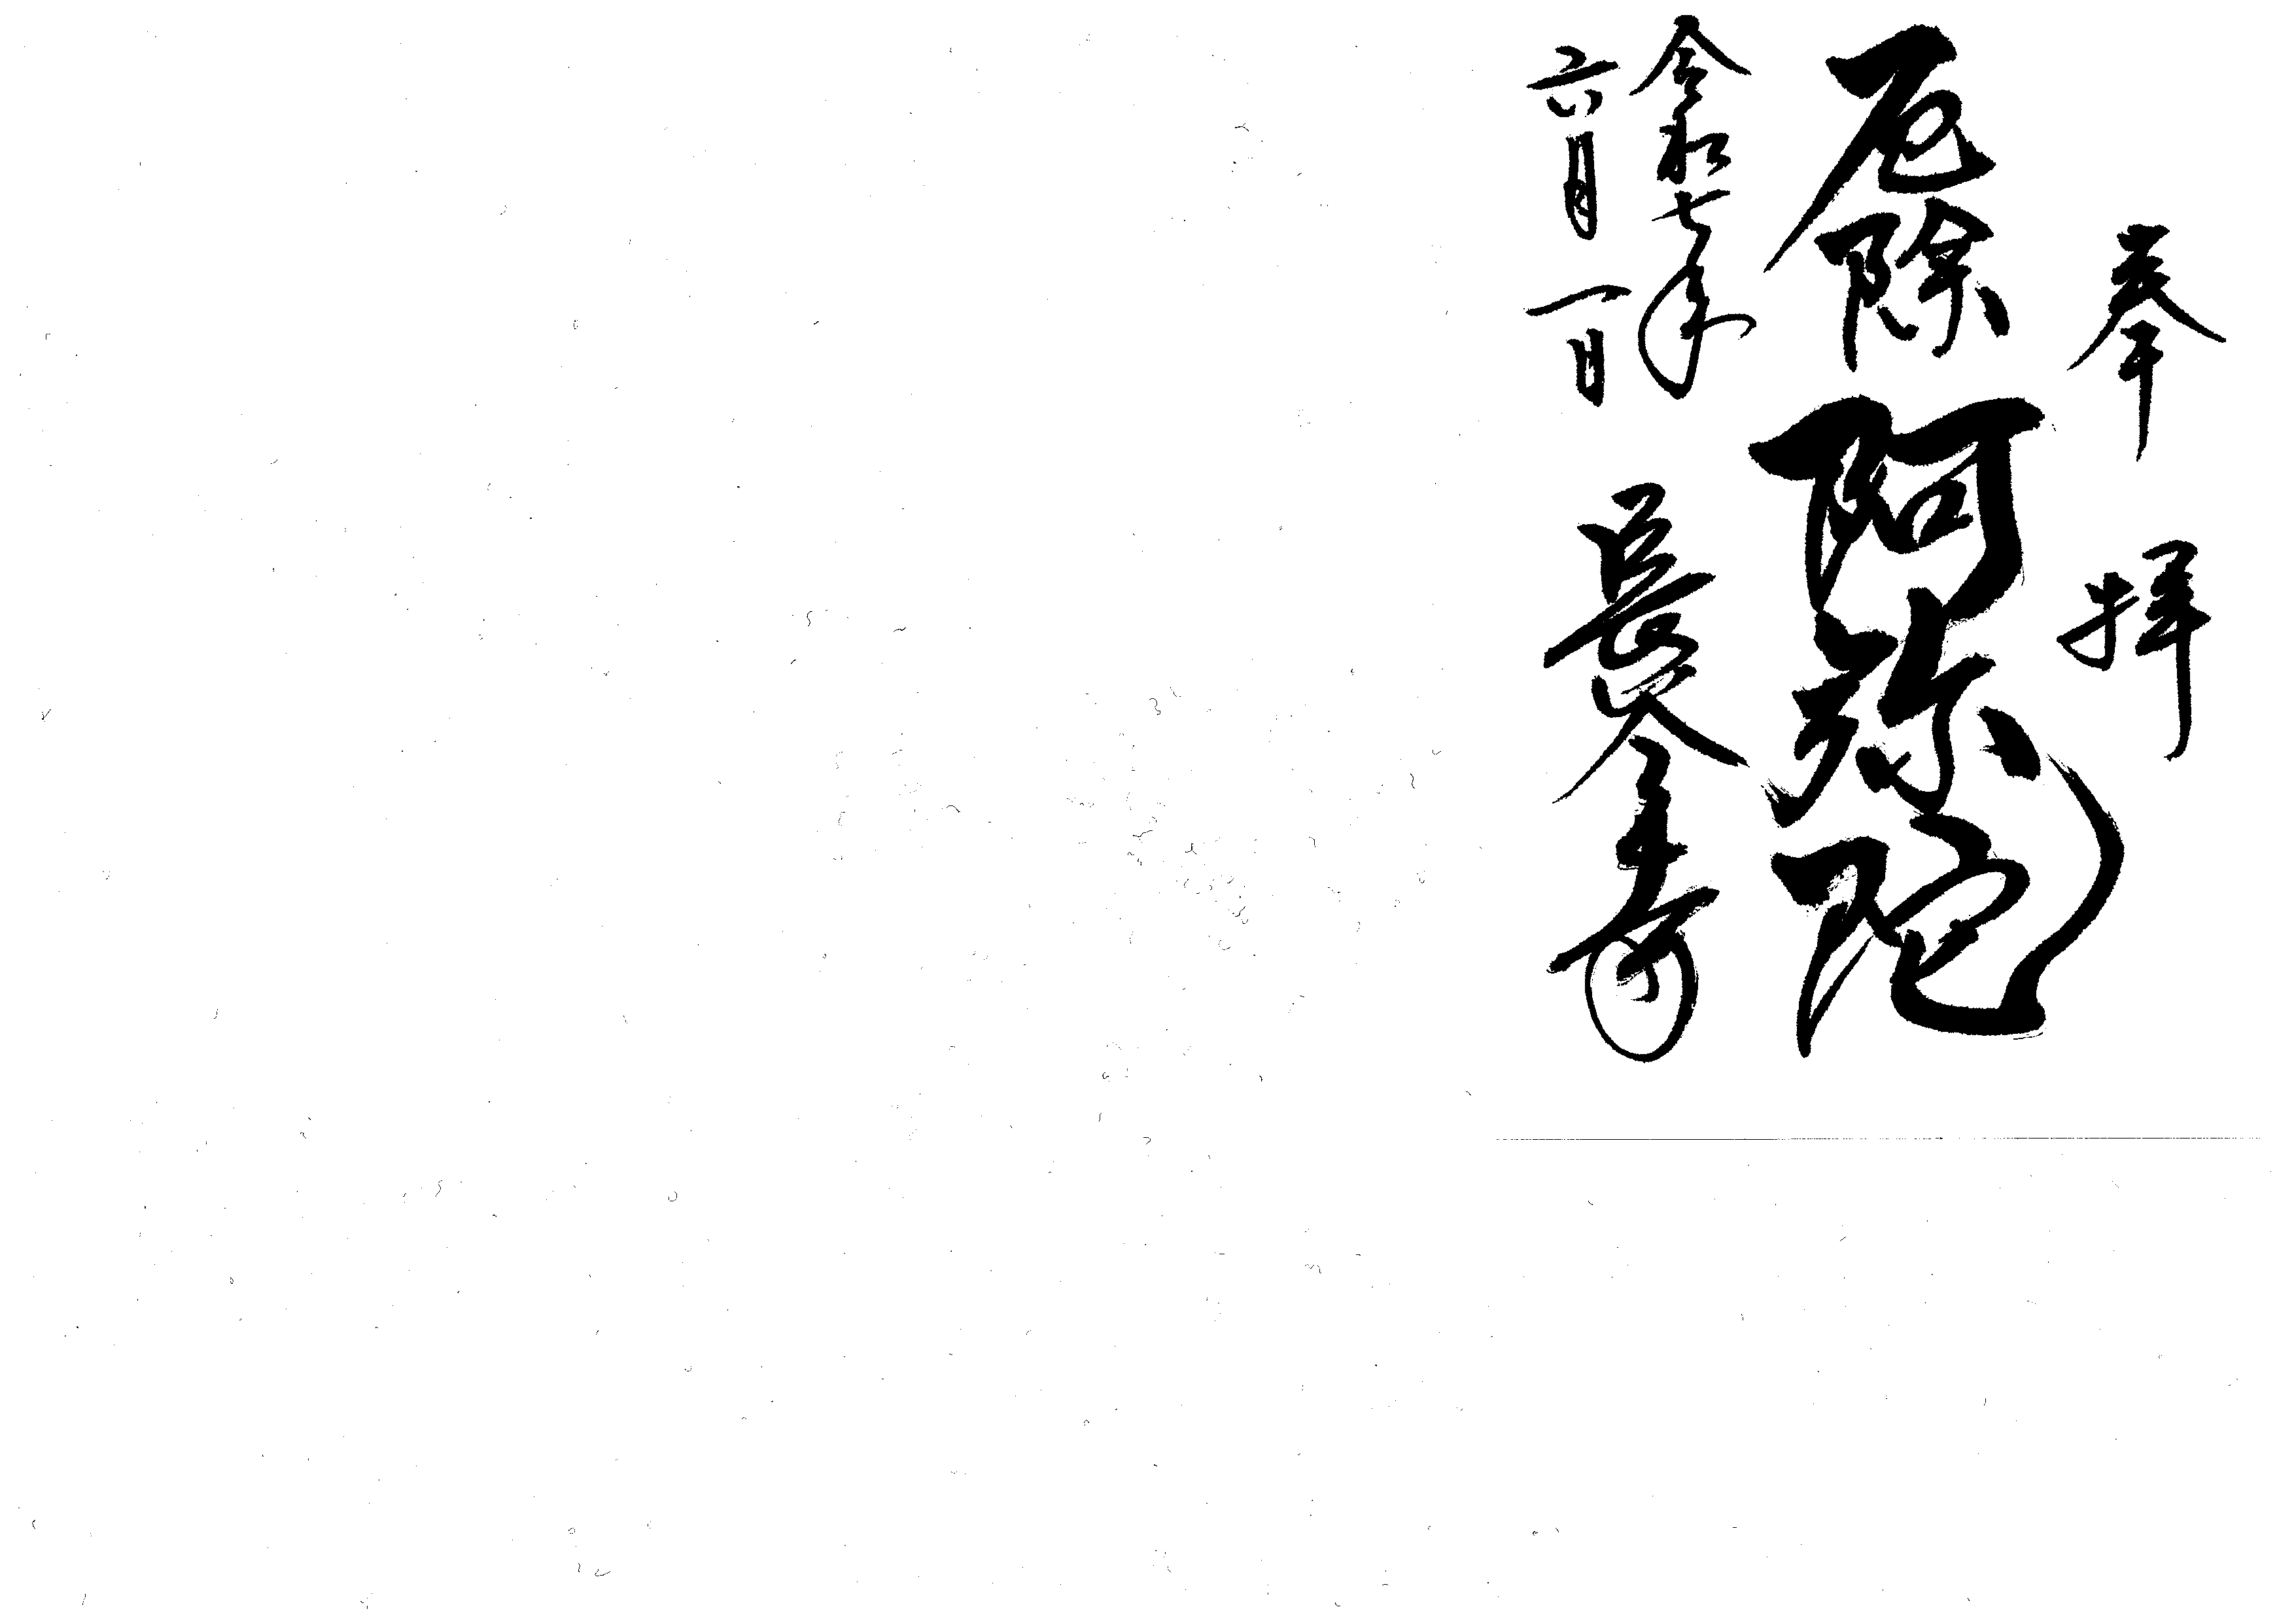 奉拝
厄除阿弥陀
令和七年
六月一日
長谷寺